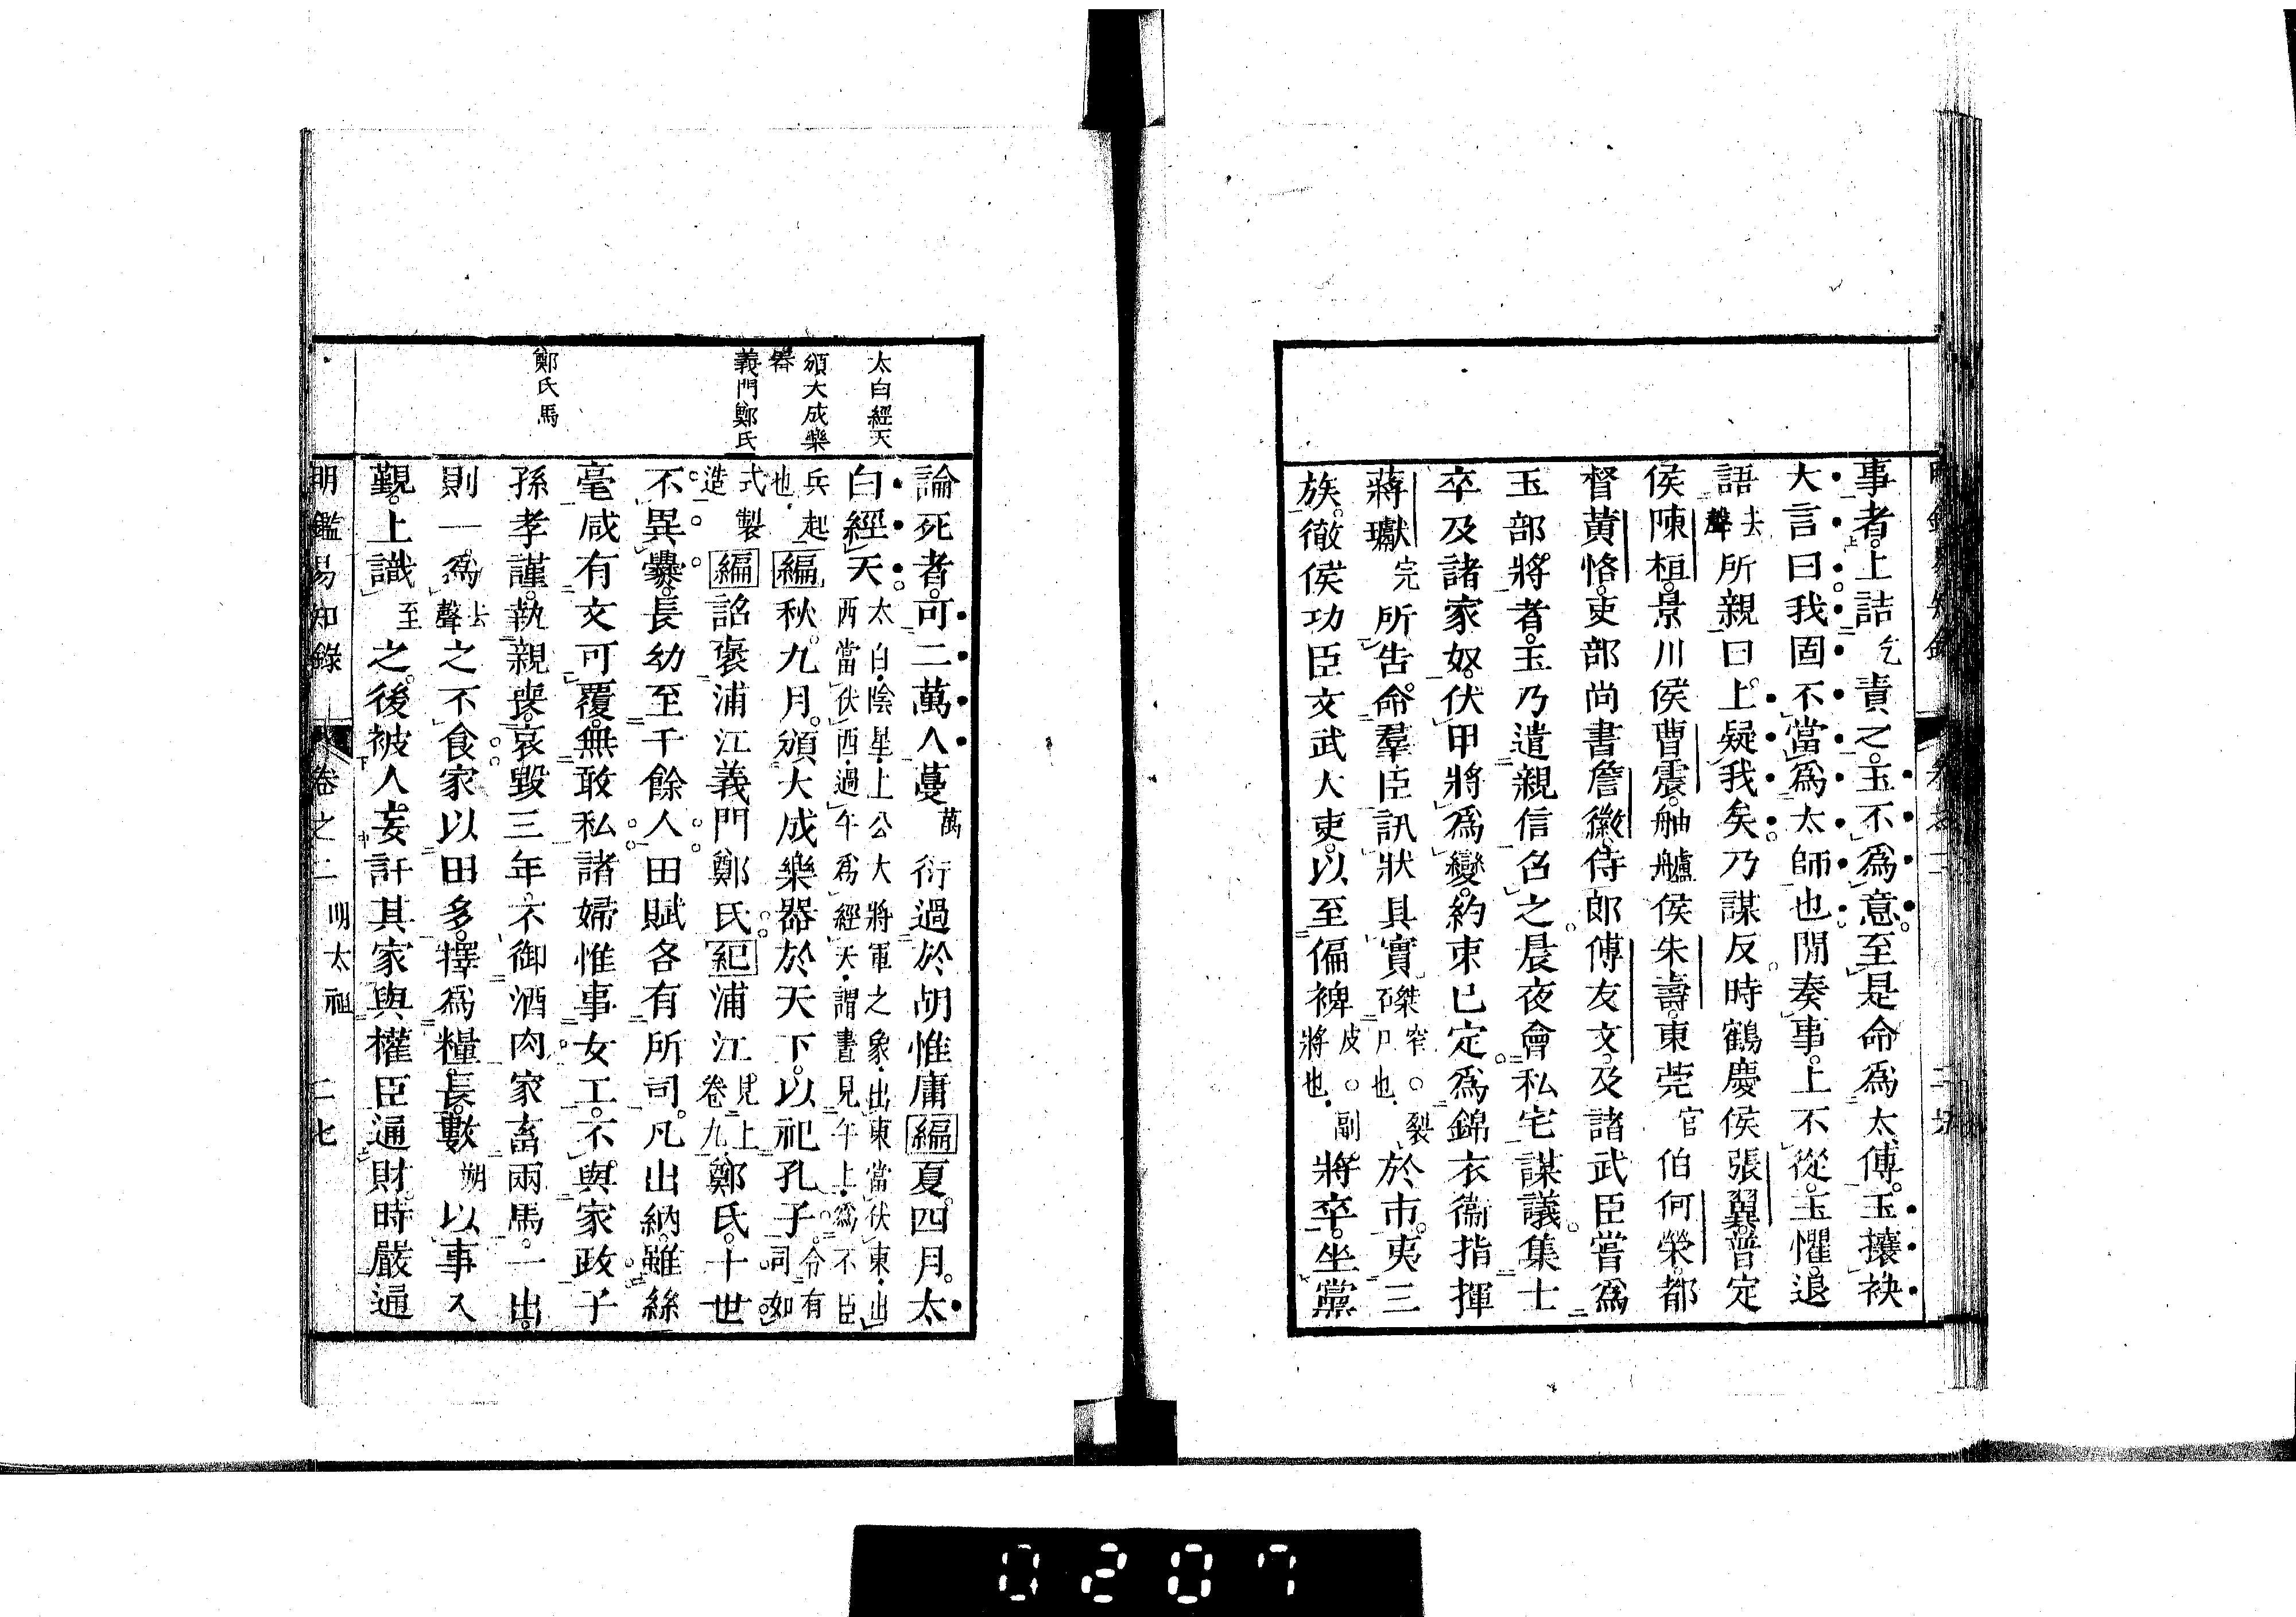 事者上詰乞責之玉不爲意至是命爲太傅玉攘袂
大言曰我固不當爲太師也閒奏事上不從玉懼退
語去聲所親曰上疑我矣乃謀反時鶴慶侯張翼普定
侯陳桓景川侯曹震舳艫侯朱壽東莞官伯何榮都
督黃恪吏部尚書詹徽侍郎傅友文及諸武臣嘗爲
玉部將者玉乃遣親信召之晨夜會私宅謀議集士
卒及諸家奴伏甲將爲變約束已定爲錦衣衞指揮
蔣瓛完所告命羣臣訊狀具實磔窄○裂尸也於市夷三
族徹侯功臣文武大吏以至偏裨皮○副將也將卒坐黨
太白經天
頒大成樂器
義門鄭氏
鄭氏馬
論死者可二萬人蔓萬衍過於胡惟庸編夏四月太
白經天太白陰星上公大將軍之象出東當伏東出西當伏西過午爲經天謂晝見午上爲不臣
兵起也編秋九月頒大成樂器於天下以祀孔子令有司如
式製造編詔褒浦江義門鄭氏紀浦江見上卷九鄭氏十世
不異爨長幼至千餘人田賦各有所司凡出納雖絲
毫咸有文可覆無敢私諸婦惟事女工不與家政子
孫孝謹執親喪哀毀三年不御酒肉家畜兩馬一出
則一爲去聲之不食家以田多擇爲糧長數朔以事入
覲上識至之後被人妄訐其家與權臣通財時嚴通
明鑑易知錄 卷之二 明太祖 二七
0207